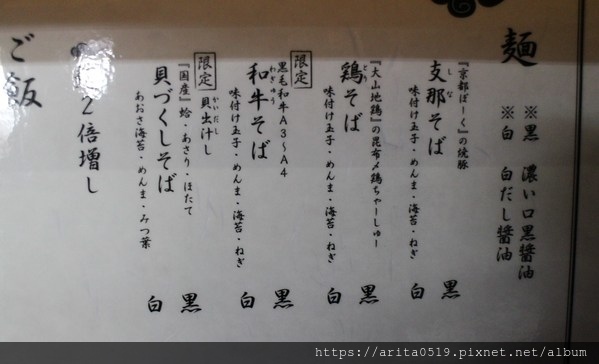 麺
※黒 濃い口黒醤油
※白 白だし醤油
『京都ぽーく』の焼豚
支那そば
しな
味付け玉子・めんま・海苔・ねぎ
黒
白
『大山地鶏』の昆布〆鶏ちゃーしゅー
鶏そば
とり
味付け玉子・めんま・海苔・ねぎ
黒
白
限定
黒毛和牛A3〜A4
和牛そば
わぎゅう
味付け玉子・めんま・海苔・ねぎ
黒
白
限定
貝出汁し
かいだし
『国産』蛤・あさり・ほたて
貝づくしそば
あおさ海苔・めんま・みつ葉
黒
白
2倍増し
ご飯
https://arita0519.pixnet.net/album